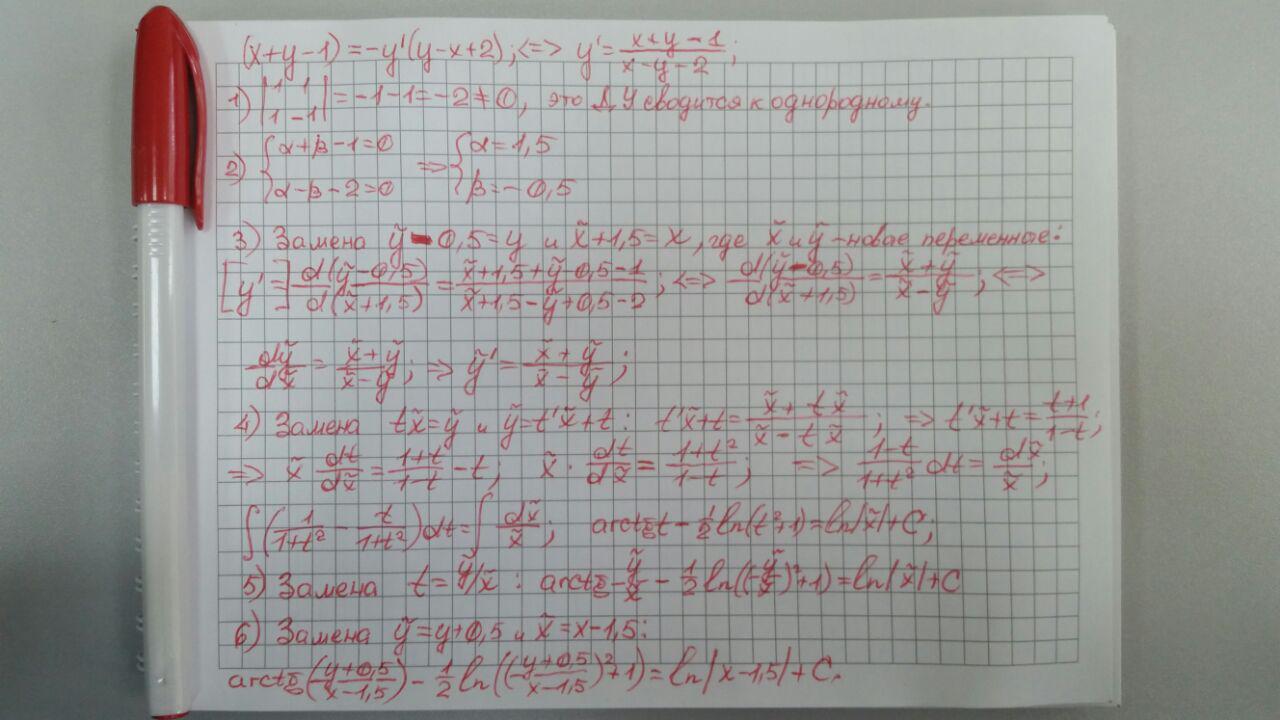 (x+y-1)=-y'(y-x+2); <=> y'=\frac{x+y-1}{x-y-2};
1) |1 1; 1 -1|=-1-1=-2≠0, это ДУ сводится к однородному.
2) {α+β-1=0; α-β-2=0 => {α=1,5; β=-0,5
3) Замена ỹ-0,5=y и x̃+1,5=x, где x̃ и ỹ-новые переменные:
[y'=]\frac{d(ỹ-0,5)}{d(x̃+1,5)}=\frac{x̃+1,5+ỹ-0,5-1}{x̃+1,5-ỹ+0,5-2}; <=> \frac{d(ỹ-0,5)}{d(x̃+1,5)}=\frac{x̃+ỹ}{x̃-ỹ}; <=>
\frac{dỹ}{dx̃}=\frac{x̃+ỹ}{x̃-ỹ}; => ỹ'=\frac{x̃+ỹ}{x̃-ỹ};
4) Замена tx̃=ỹ и ỹ=t'x̃+t: t'x̃+t=\frac{x̃+tx̃}{x̃-tx̃}; => t'x̃+t=\frac{t+1}{1-t};
=> x̃\frac{dt}{dx̃}=\frac{1+t}{1-t}-t; x̃·\frac{dt}{dx̃}=\frac{1+t²}{1-t}; => \frac{1-t}{1+t²}dt=\frac{dx̃}{x̃};
∫(\frac{1}{1+t²}-\frac{t}{1+t²})dt=∫\frac{dx̃}{x̃}; arctg t-\frac{1}{2}ln(t²+1)=ln|x̃|+C;
5) Замена t=ỹ/x̃: arctg\frac{ỹ}{x̃}-\frac{1}{2}ln((\frac{ỹ}{x̃})²+1)=ln|x̃|+C
6) Замена ỹ=y+0,5 и x̃=x-1,5:
arctg(\frac{y+0,5}{x-1,5})-\frac{1}{2}ln((\frac{y+0,5}{x-1,5})²+1)=ln|x-1,5|+C.